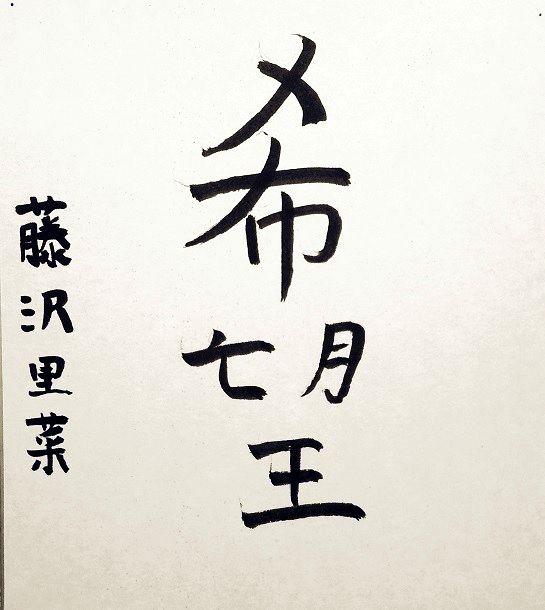 希望
藤沢里菜